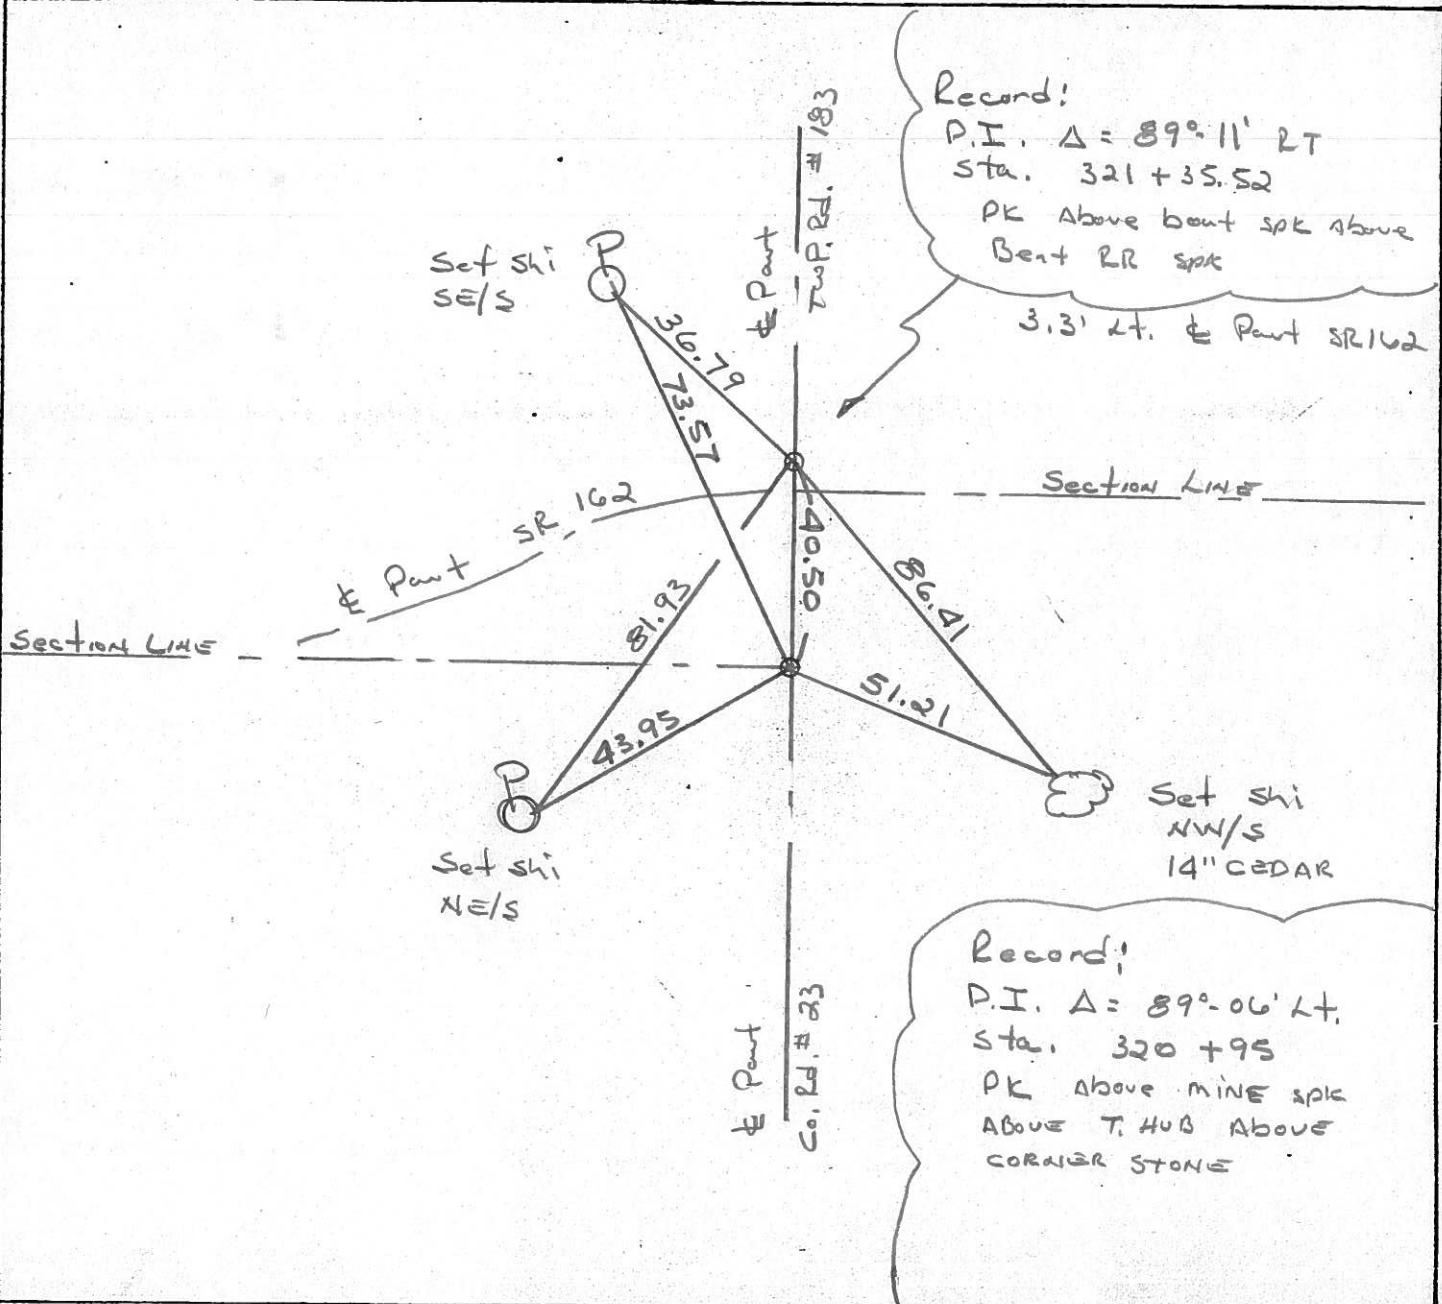 Record:
P.I. Δ = 89°-11' RT
Sta. 321+35.52
PK Above bent spk Above
Bent RR spk
3.3' Lt. ℄ Pavt SR162
℄ Pavt
TWP. Rd. # 183
Set shi
SE/S
P
36.79
73.57
Section LINE
SR 162
℄ Pavt
40.50
86.41
81.93
Section LINE
51.21
43.95
P
Set shi
NW/S
14" CEDAR
Set shi
NE/S
℄ Pavt
Co. Rd. # 23
Record:
P.I. Δ = 89°-06' Lt.
Sta. 320 +95
PK Above MINE spk
ABOVE T. HUB ABOVE
CORNER STONE